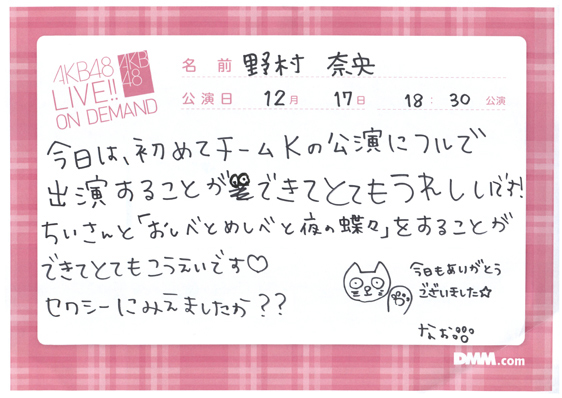 AKB48
LIVE!!
ON DEMAND
AKB
48
名前 野村 奈央
公演日 12月 17日 18:30 公演
今日は、初めてチームKの公演にフルで
出演することができてとてもうれしいです!
ちぃさんと「おしべとめしべと夜の蝶々」をすることが
できてとてもこうえいです♡
セクシーにみえましたか??
今日もありがとう
ございました☆
なお
DMM.com